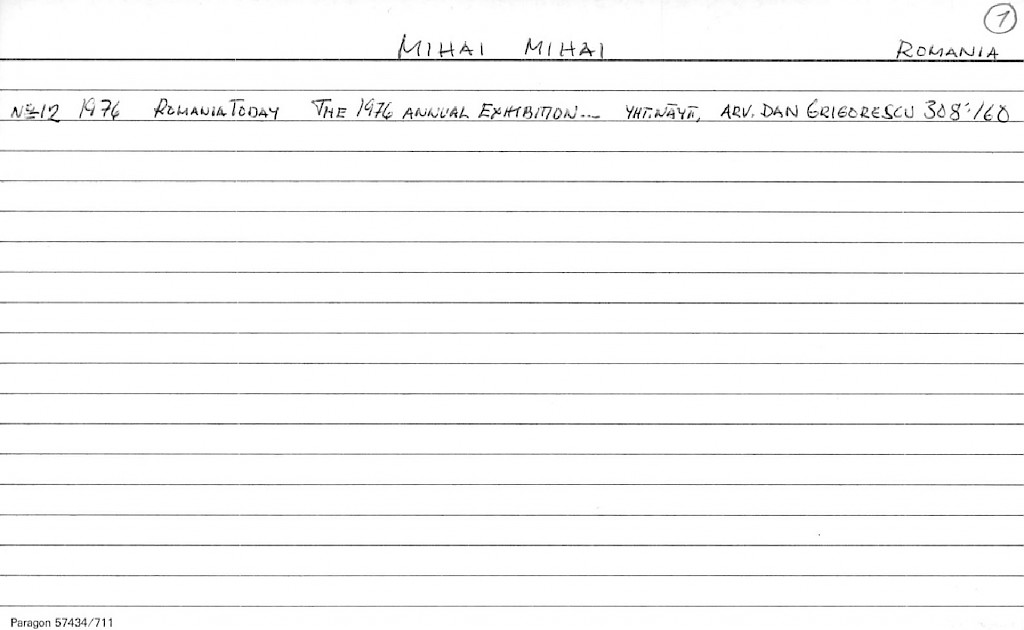 1
MIHAI MIHAI ROMANIA
No 12 1976 ROMANIA TODAY THE 1976 ANNUAL EXHIBITION... YHT.NÄYT, ARV. DAN GRIGORESCU 308:/60
Paragon 57434/711